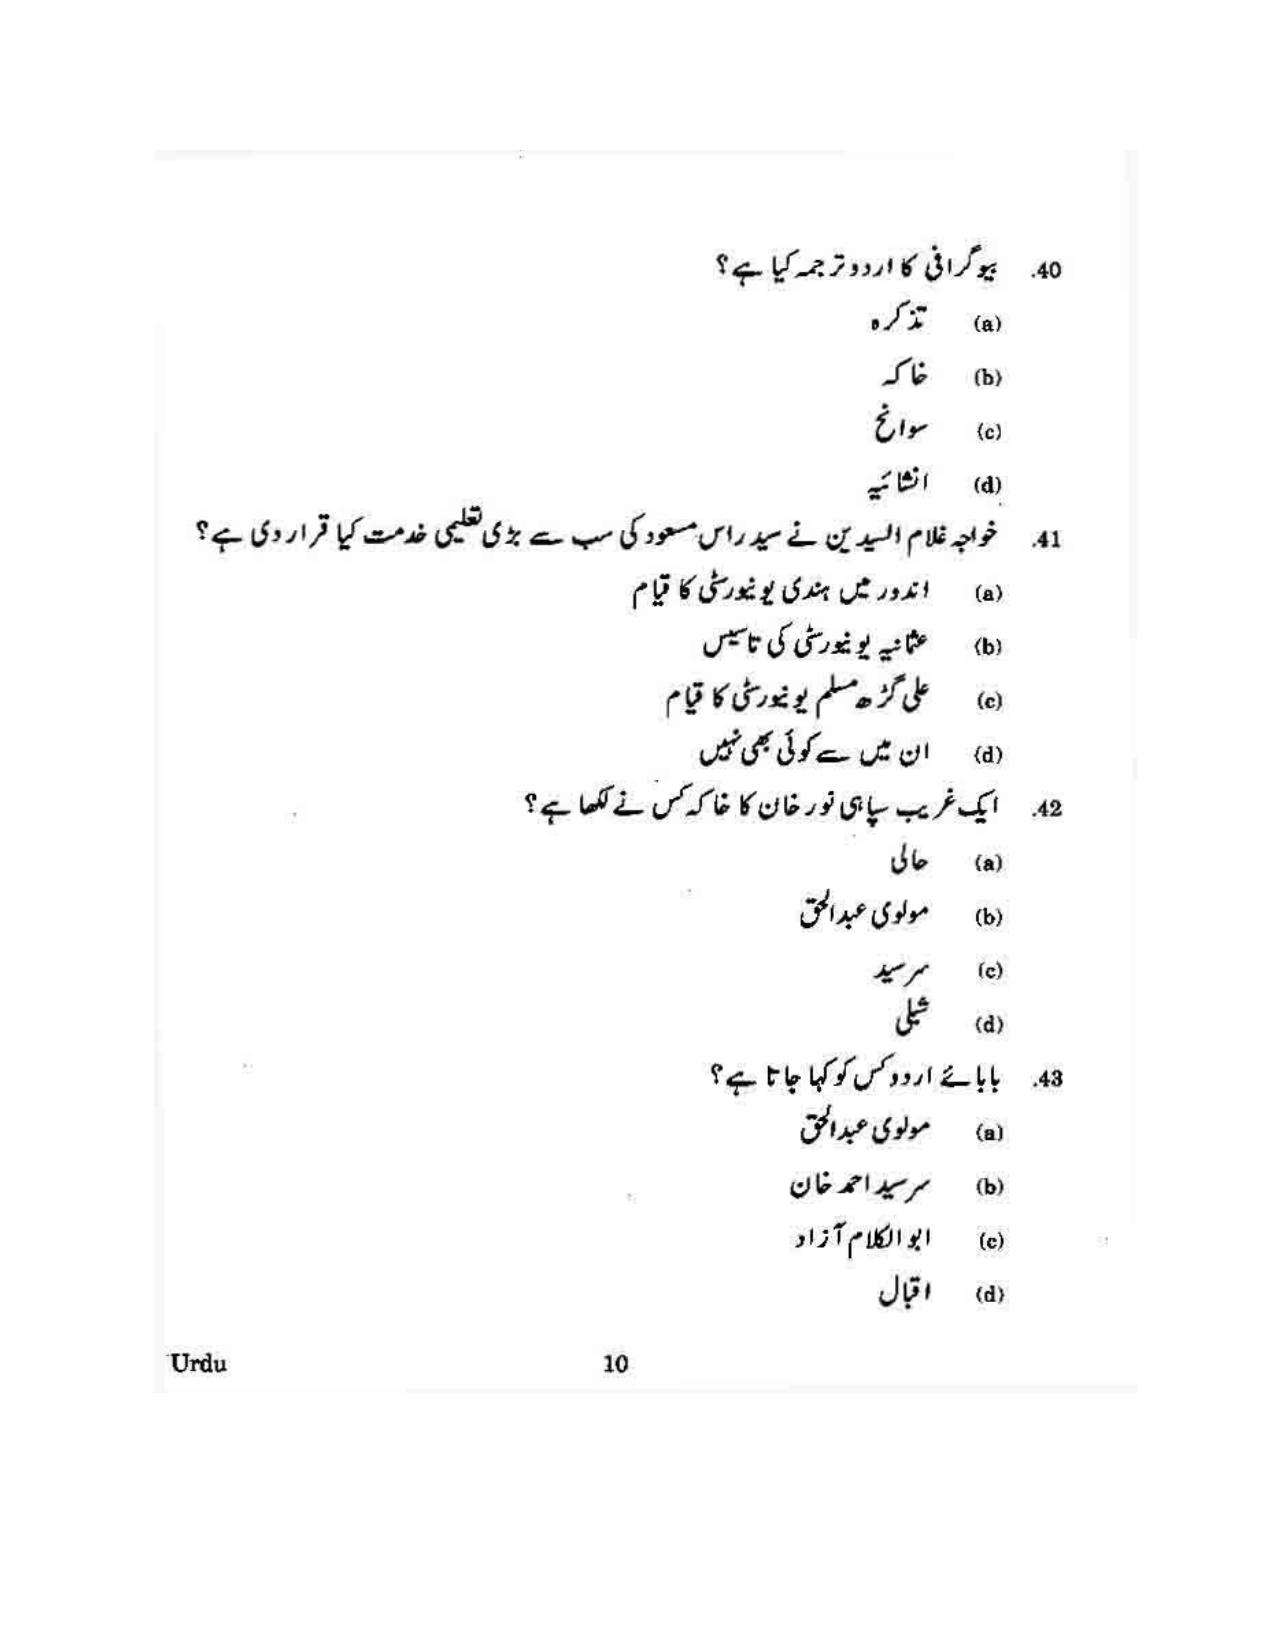 40. بیوگرافی کا اردو ترجمہ کیا ہے؟
(a) تذکرہ
(b) خاکہ
(c) سوانح
(d) انشائیہ
41. خواجہ غلام السیدین نے سید راس مسعود کی سب سے بڑی تعلیمی خدمت کیا قرار دی ہے؟
(a) اندور میں ہندی یونیورسٹی کا قیام
(b) عثمانیہ یونیورسٹی کی تاسیس
(c) علی گڑھ مسلم یونیورسٹی کا قیام
(d) ان میں سے کوئی بھی نہیں
42. ایک غریب سپاہی نور خان کا خاکہ کس نے لکھا ہے؟
(a) حالی
(b) مولوی عبدالحق
(c) سرسید
(d) شبلی
43. بابائے اردو کس کو کہا جاتا ہے؟
(a) مولوی عبدالحق
(b) سرسید احمد خان
(c) ابوالکلام آزاد
(d) اقبال
Urdu 10